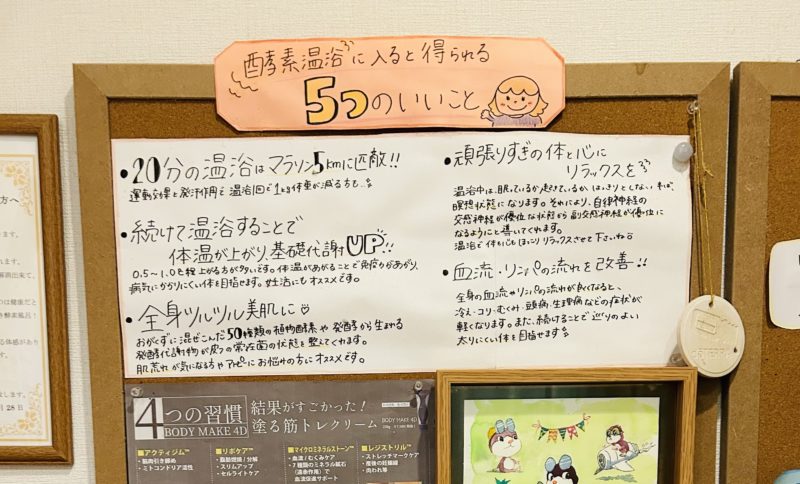 酵素温浴に入ると得られる
5つのいいこと
・20分の温浴はマラソン5kmに匹敵!!
運動効果と発汗作用で温浴1回で1kg体重が減る方も…
・続けて温浴することで
体温が上がり、基礎代謝UP!!
0.5~1.0℃程上がる方が多いです。体温があがることで免疫力があがり、
病気にかかりにくい体を目指せます。妊活にもオススメです。
・全身ツルツル美肌に
おがくずに混ぜこんだ50種類の植物酵素や発酵から生まれる
発酵代謝物が皮フの常在菌の状態を整えてくれます。
肌荒れが気になる方やアトピーにお悩みの方にオススメです。
・頑張りすぎの体と心に
リラックスを
温浴中は、眠っているか起きているか、はっきりとしない、半ば
瞑想状態になります。それにより、自律神経の
交感神経が優位な状態から副交感神経が優位に
なるようにと導いてくれます。
温浴で体も心もほっこりリラックスさせて下さいね
・血流・リンパの流れを改善!!
全身の血流やリンパの流れが良くなると、
冷え・コリ・むくみ・頭痛・生理痛などの症状が
軽くなります。また、続けることで巡りのよい
太りにくい体を目指せます
4つの習慣
BODY MAKE 4D
結果がすごかった!
塗る筋トレクリーム
BODY MAKE 4D
■アクティジム™
・筋肉引き締め
・ミトコンドリア活性
■リポケア™
・脂肪燃焼/分解
・スリムアップ
・セルライトケア
■マイクロミネラルストーン™
・血流/むくみケア
・7種類のミネラル鉱石
(温泉作用)で
血流促進サポート
■レジストリル™
・ストレッチマークケア
・産後の妊娠線
・肉割れ等
方へ
ます。
月28日